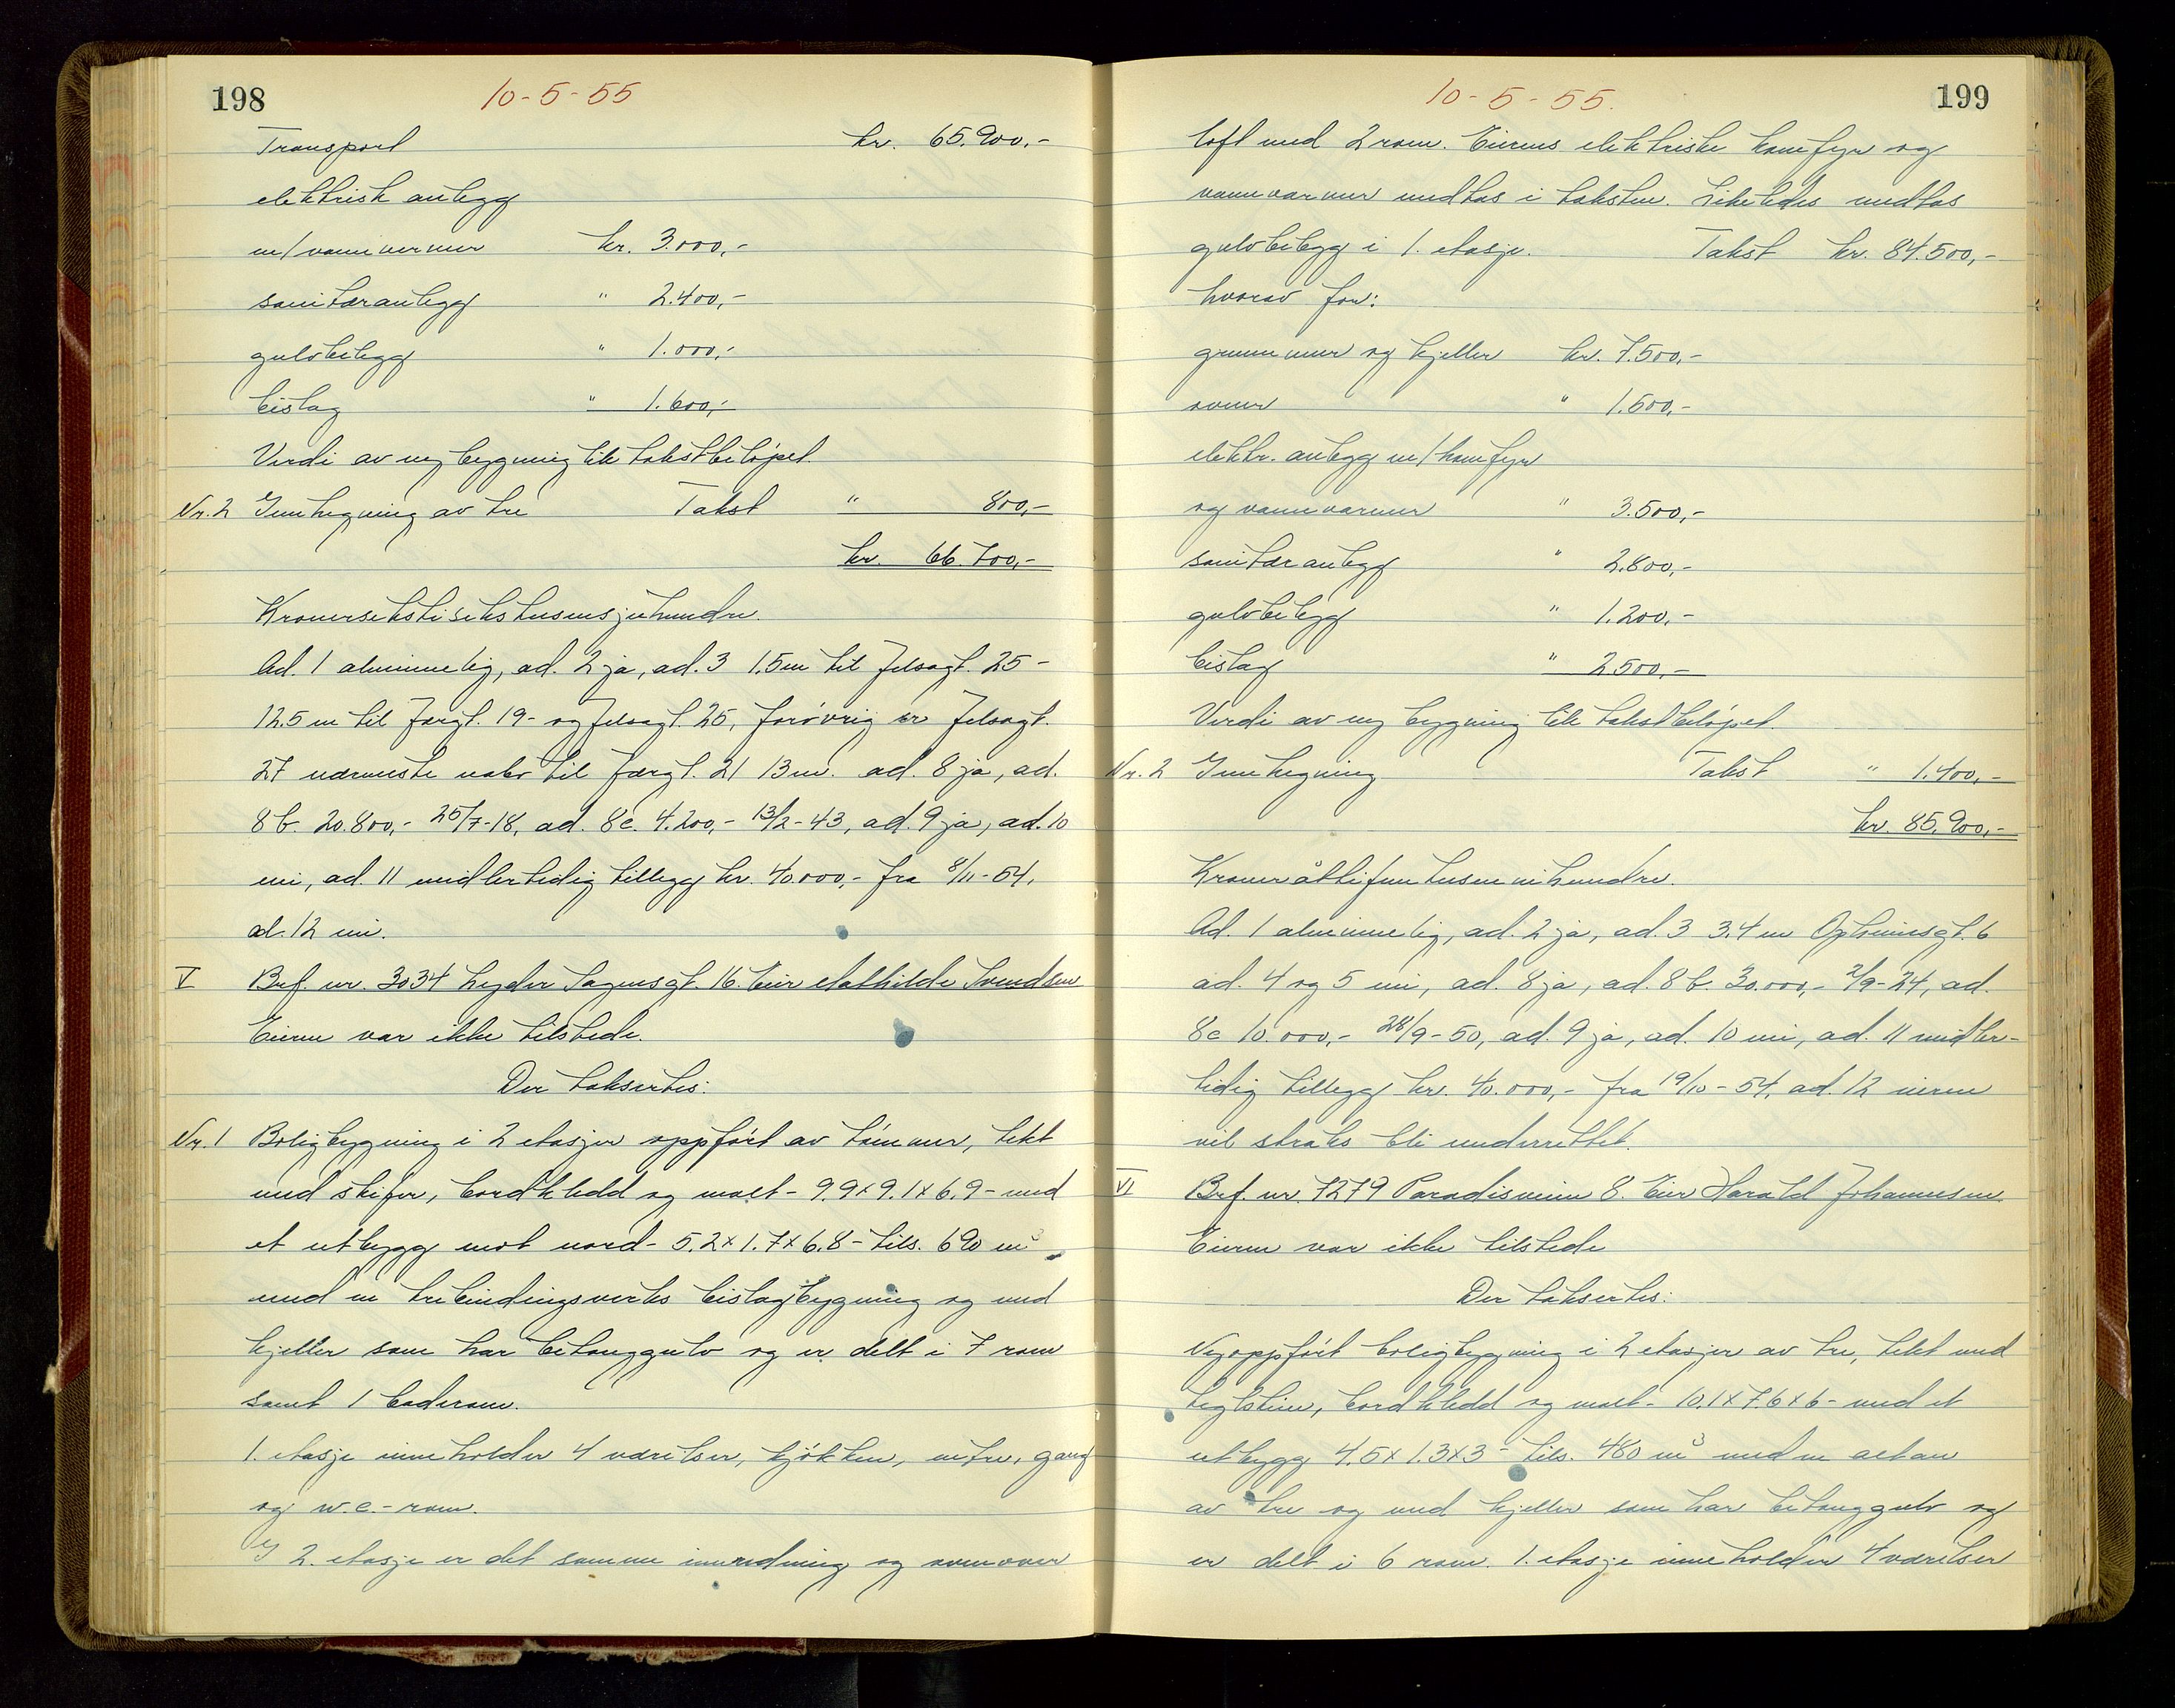 198
10-5-55
Transport kr. 65.900,-
elektrisk anlegg
m/vannvarmer kr. 3.000,-
sanitæranlegg " 2.400,-
gulvbelegg " 1.000,-
bislag " 1.600,-
Verdi av ny bygning lik takstbeløpet.
Nr. 2 Innhegning av tre Takst " 800,-
kr. 66.700,-
Kronersekstisekstusensjuhundre.
Ad. 1 alminnelig, ad. 2 ja, ad. 3 1.5 m til Jelsagt. 25 -
12.5 m til Jærgt. 19- og Jelsagt. 25, forøvrig er Jelsagt.
27 nærmeste nabo til Jærgt. 21 13 m. ad. 8 ja, ad.
8 b. 20.800,- 25/7-18, ad. 8c. 4.200,- 13/2-43, ad. 9 ja, ad. 10
nei, ad. 11 midlertidig tillegg kr. 40.000,- fra 8/11-54,
ad. 12 nei.
V Brf. nr. 3034 Ryder Sagensgt. 16. Eier Mathilde Svendsen
Eieren var ikke tilstede.
Der taksertes:
Nr. 1 Boligbygning i 2 etasjer oppført av tømmer, tekt
med skifer, bordkledd og malt - 9.9 x 9.1 x 6.9 - med
et utbygg mot nord - 5.2 x 1.7 x 6.8 - tils. 690 m³
med en trebindingsverks bislagbygning og med
kjeller som har betonggulv og er delt i 7 rom
samt 1 baderom.
1. etasje inneholder 4 værelser, kjøkken, entre, gang
og w.c.-rom.
I 2. etasje er det samme innredning og ovenover
199
10-5-55.
loft med 2 rom. Eierens elektriske komfyr og
vannvarmer medtas i taksten. Likeledes medtas
gulvbelegg i 1. etasje. Takst kr. 84.500,-
hvorav for:
grunnmur og kjeller kr. 7.500,-
ovner " 1.600,-
elektr. anlegg m/komfyr
og vannvarmer " 3.500,-
sanitæranlegg " 2.800,-
gulvbelegg " 1.200,-
bislag " 2.500,-
Verdi av ny bygning lik takstbeløpet.
Nr. 2 Innhegning Takst " 1.400,-
kr. 85.900,-
Kroneråttifemtusennihundre.
Ad. 1 alminnelig, ad. 2 ja, ad. 3 3.4 m Opheimsgt. 6
ad. 4 og 5 nei, ad. 8 ja, ad. 8 b. 30.000,- 2/9-24, ad.
8c 10.000,- 28/9-50, ad. 9 ja, ad. 10 nei, ad. 11 midler-
tidig tillegg kr. 40.000,- fra 19/10-54, ad. 12 eieren
vil straks bli underrettet.
VI Brf. nr. 7279 Paradisveien 8. Eier Harald Johannesen.
Eieren var ikke tilstede
Der taksertes:
Nyoppført boligbygning i 2 etasjer av tre, tekt med
teglstein, bordkledd og malt - 10.1 x 7.6 x 6 - med et
utbygg 4.5 x 1.3 x 3 - tils. 480 m³ med en altan
av tre og med kjeller som har betonggulv og
er delt i 6 rom. 1. etasje inneholder 4 værelser